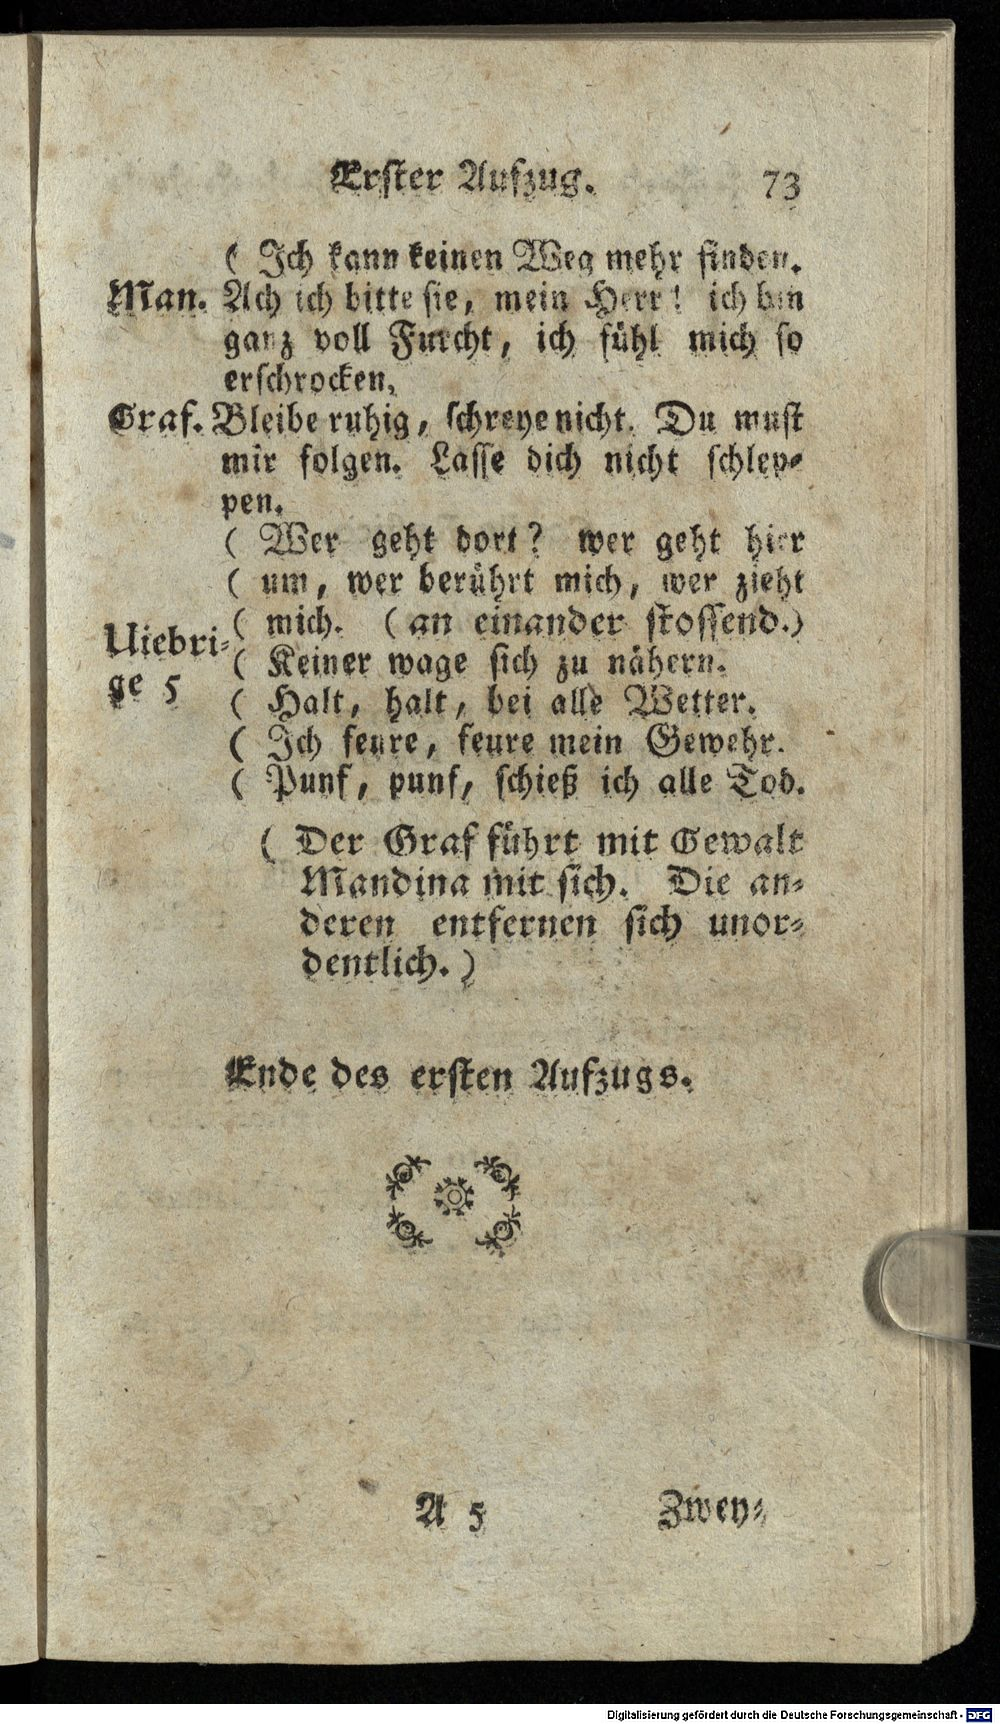 Erster Aufzug. 73
( Ich kann keinen Weg mehr finden.
Man. Ach ich bitte sie, mein Herr! ich bin
ganz voll Furcht, ich fühl mich so
erschrocken,
Graf. Bleibe ruhig, schreye nicht. Du must
mir folgen. Lasse dich nicht schlep-
pen.
( Wer geht dort? wer geht hier
( um, wer berührt mich, wer zieht
( mich. (an einander stossend.)
Uiebri-
ge 5
( Keiner wage sich zu nähern.
( Halt, halt, bei alle Wetter.
( Ich feure, feure mein Gewehr.
( Punf, punf, schieß ich alle Tod.
( Der Graf führt mit Gewalt
Mandina mit sich. Die an-
deren entfernen sich unor-
dentlich.)
Ende des ersten Aufzugs.
A 5 Zwey-
Digitalisierung gefördert durch die Deutsche Forschungsgemeinschaft - DFG